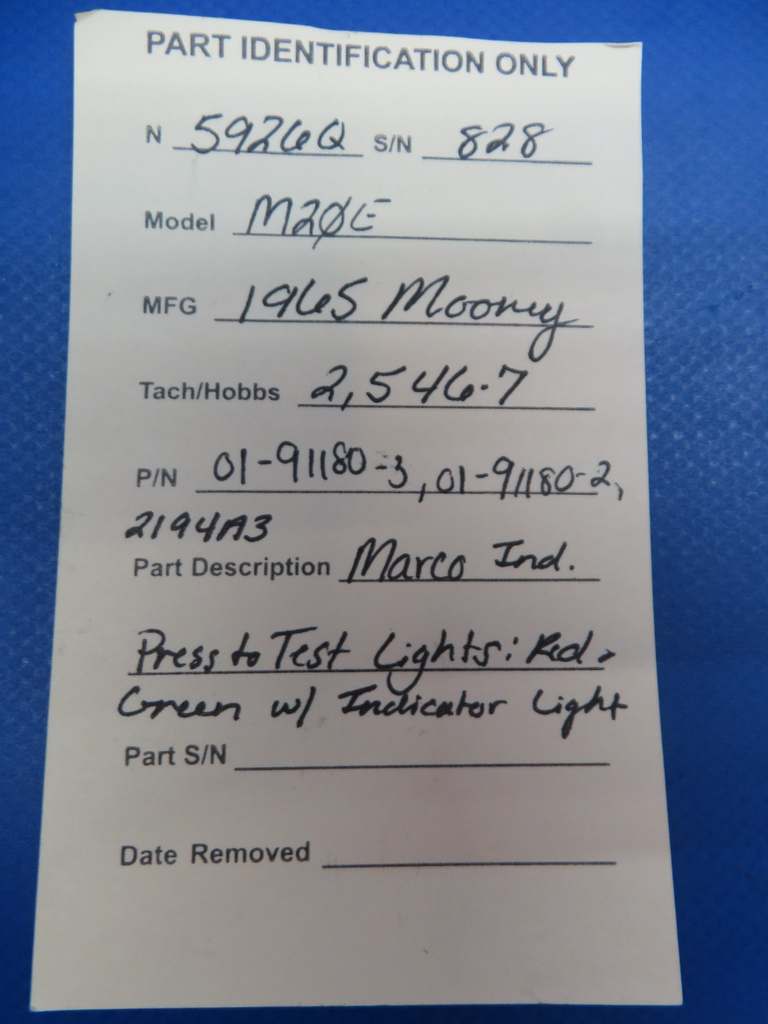 PART IDENTIFICATION ONLY
N 5926Q S/N 828
Model M20E
MFG 1965 Mooney
Tach/Hobbs 2,546.7
P/N 01-91180-3, 01-91180-2,
2194A3
Part Description Marco Ind.
Press to Test Lights: Red,
Green w/ Indicator Light
Part S/N
Date Removed